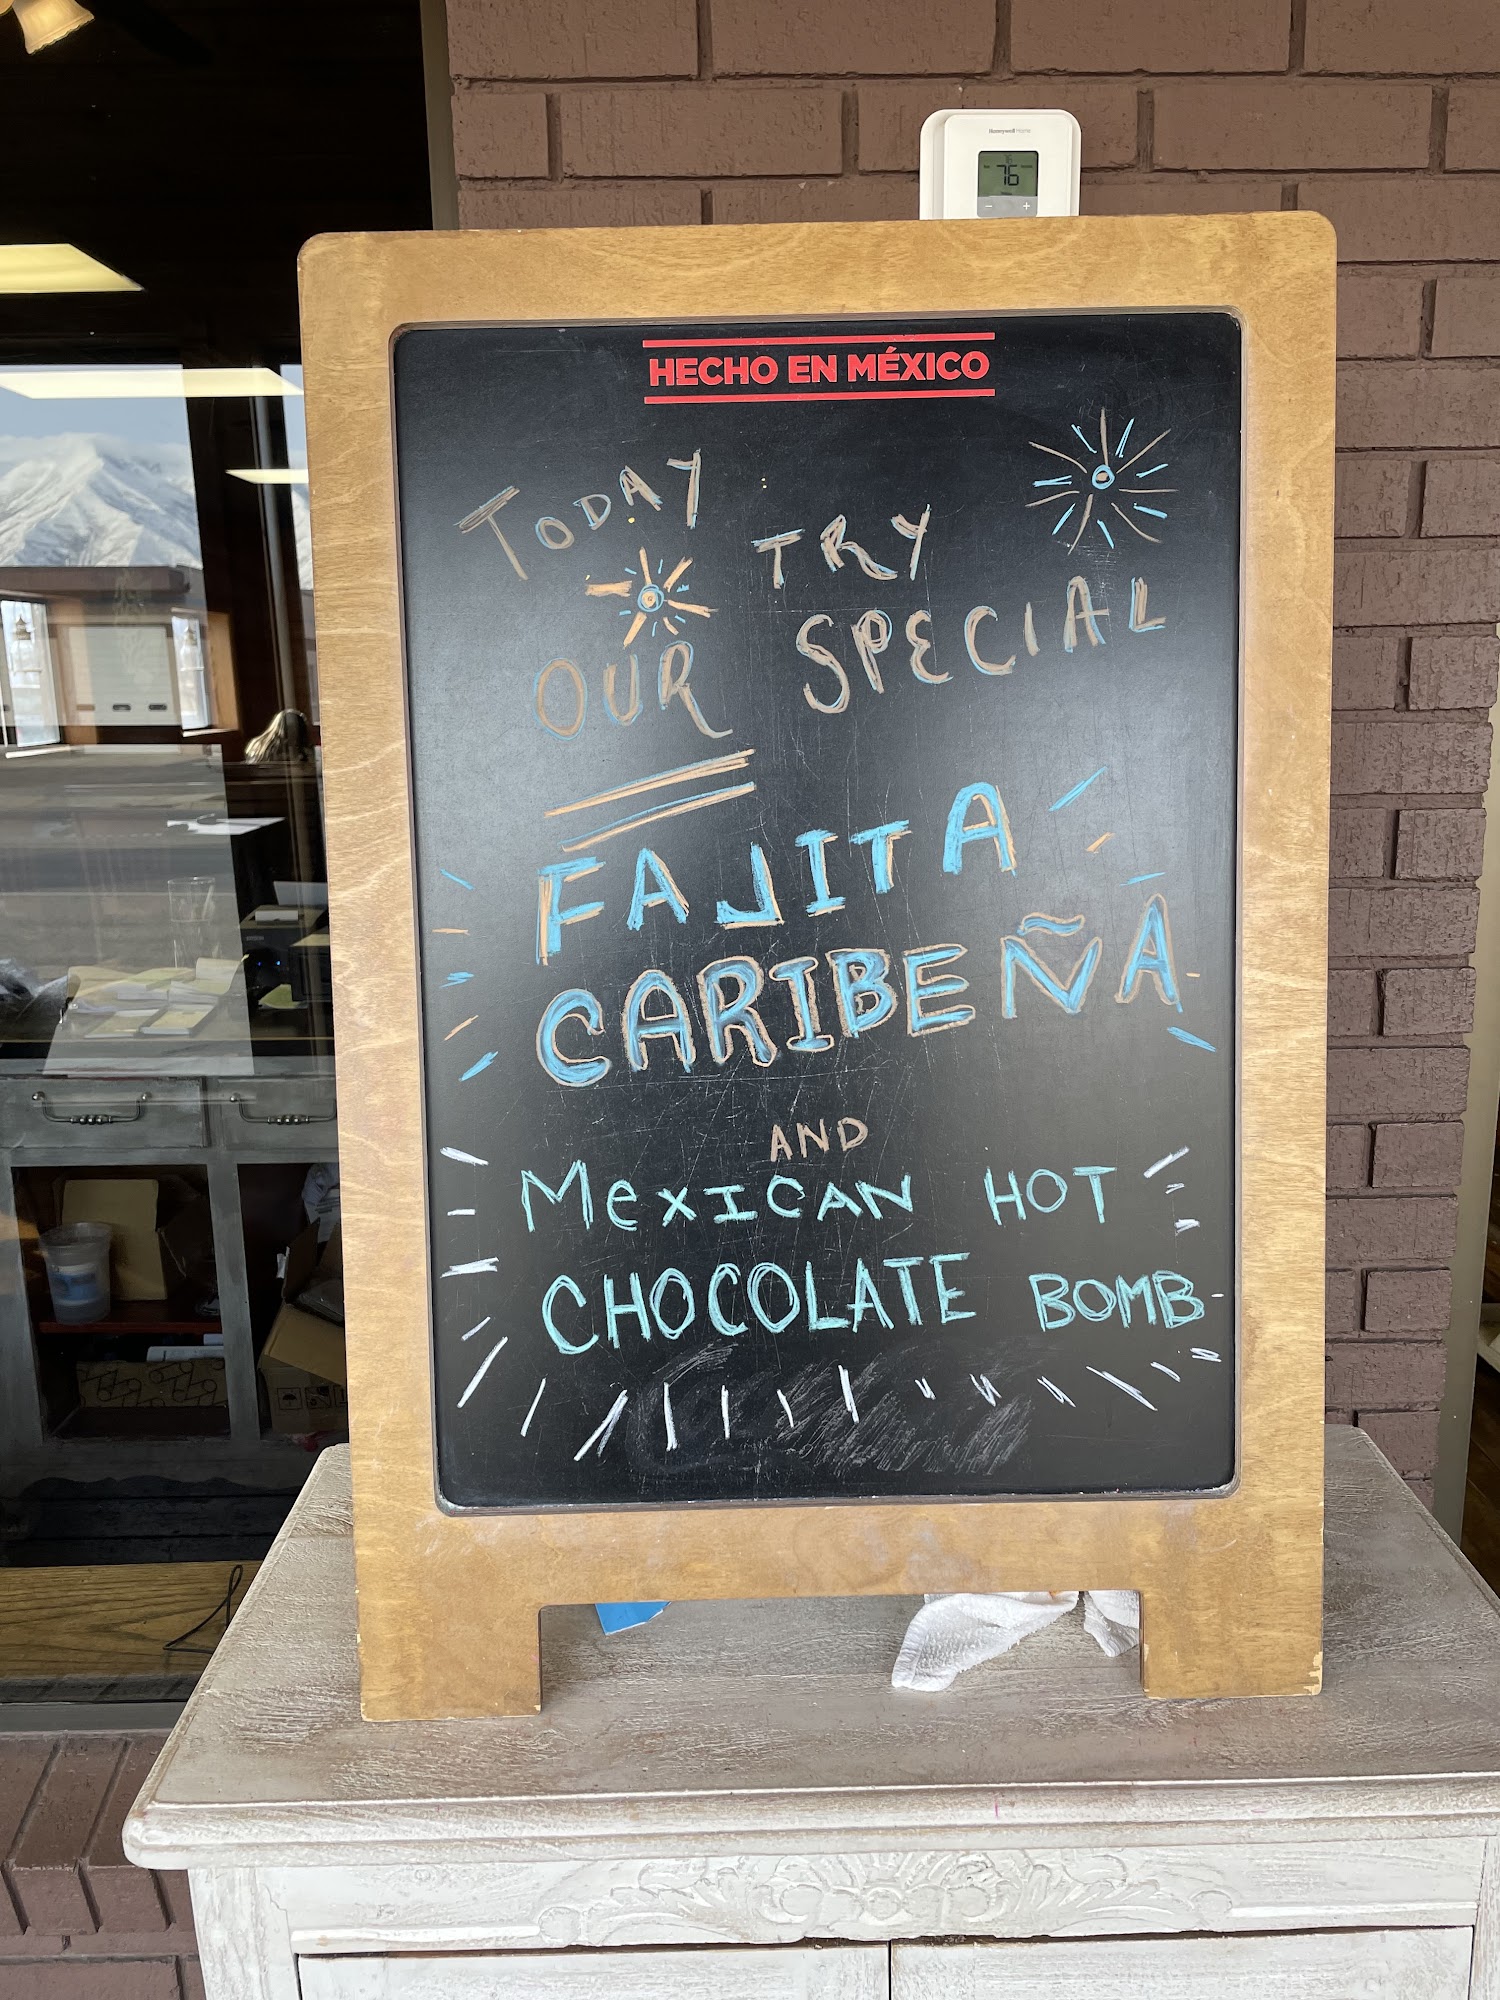 Honeywell Home
76
HECHO EN MÉXICO
TODAY TRY
OUR SPECIAL
FAJITA
CARIBEÑA
AND
MEXICAN HOT
CHOCOLATE BOMB